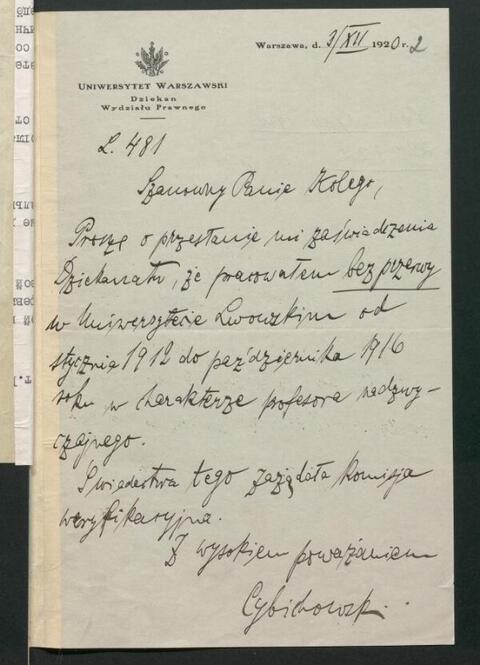 Warszawa, d. 3/XII 1920 r. 2
UNIWERSYTET WARSZAWSKI
Dziekan
Wydziału Prawnego
L. 481
Szanowny Panie Kolego,
Proszę o przesłanie mi zaświadczenia
Dziekanatu, że pracowałem bez przerwy
w Uniwersytecie Lwowskim od
stycznia 1912 do października 1916
roku w charakterze profesora nadzwy-
czajnego.
Świadectwa tego zażądała Komisja
weryfikacyjna.
Z wysokiem poważaniem
Cybichowski